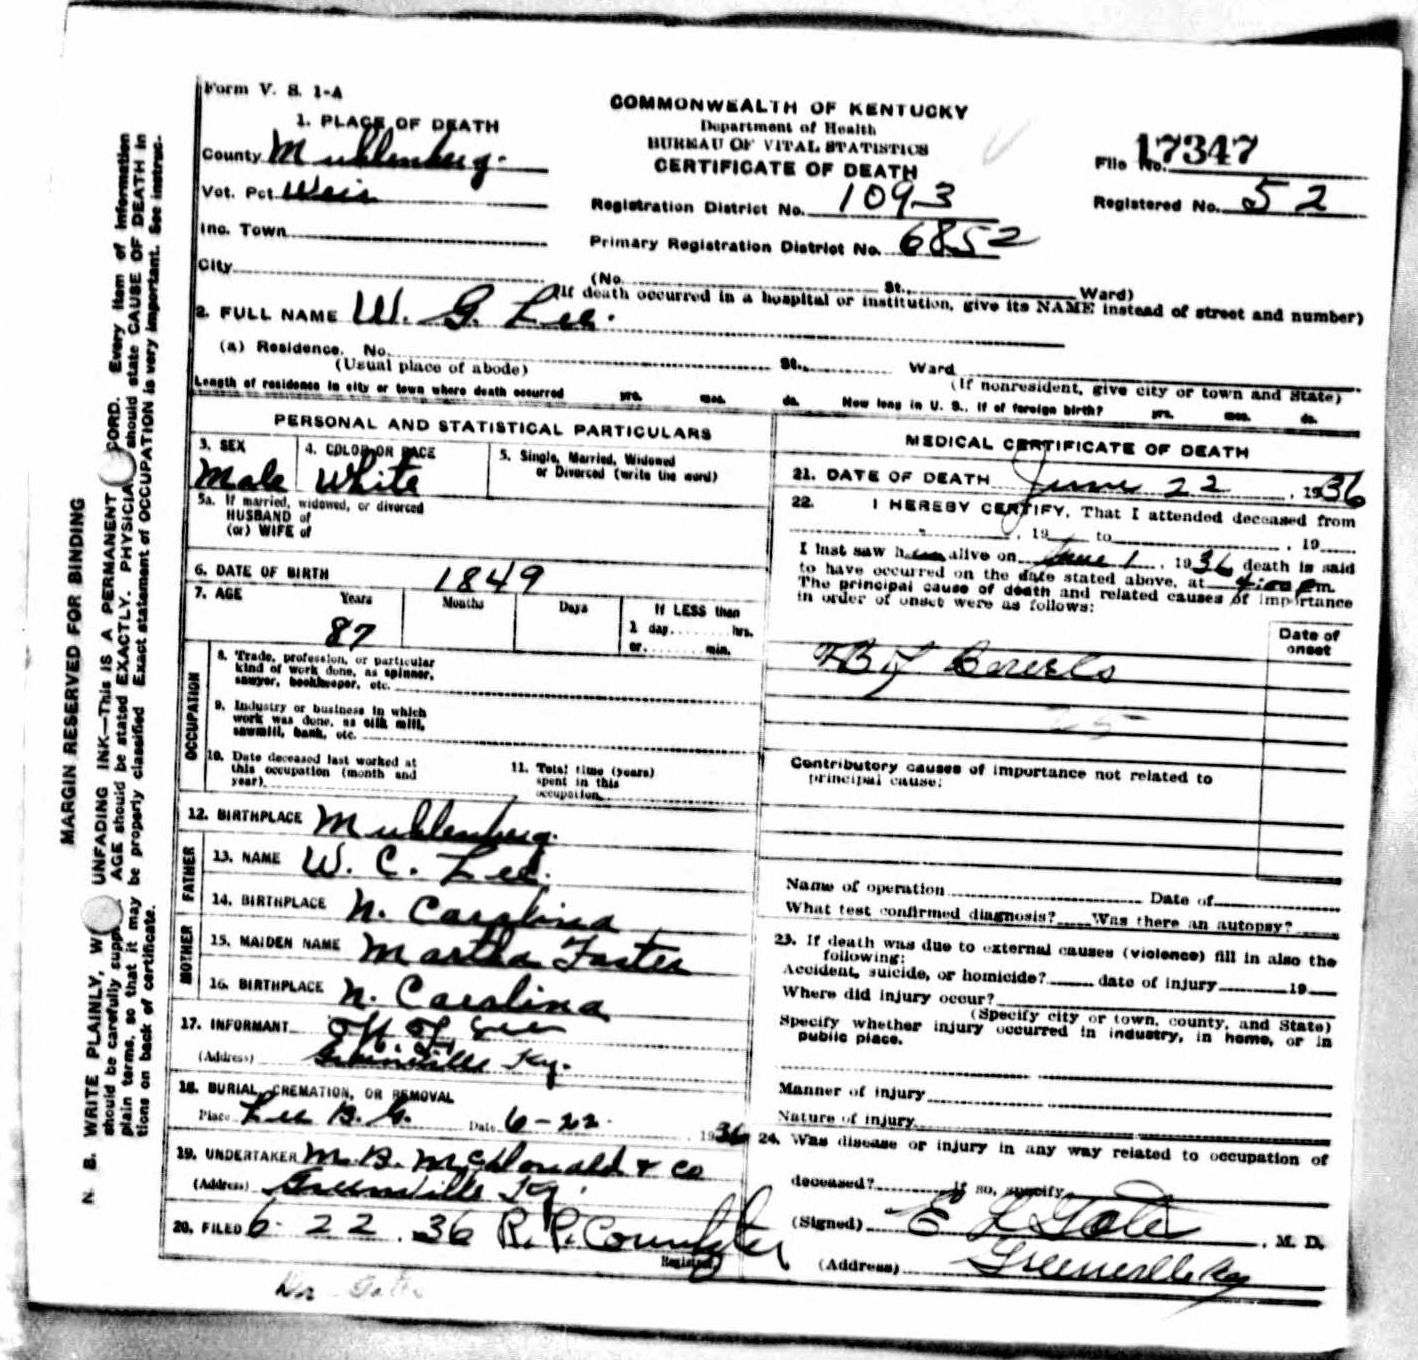 Form V. S. 1-A
COMMONWEALTH OF KENTUCKY
Department of Health
BUREAU OF VITAL STATISTICS
CERTIFICATE OF DEATH
File No. 17347
Registered No. 52
1. PLACE OF DEATH
County Muhlenberg.
Vot. Pct. Weir
Inc. Town
City
Registration District No. 1093
Primary Registration District No. 6852
(No. St. Ward)
(If death occurred in a hospital or institution, give its NAME instead of street and number)
2. FULL NAME W. G. Lee.
(a) Residence. No. St. Ward
(Usual place of abode) (If nonresident, give city or town and State)
Length of residence in city or town where death occurred yrs. mos. ds. How long in U. S., if of foreign birth? yrs. mos. ds.
PERSONAL AND STATISTICAL PARTICULARS
3. SEX Male
4. COLOR OR RACE White
5. Single, Married, Widowed
or Divorced (write the word)
5a. If married, widowed, or divorced
HUSBAND of
(or) WIFE of
6. DATE OF BIRTH 1849
7. AGE Years Months Days If LESS than
87 1 day, hrs.
or min.
OCCUPATION
8. Trade, profession, or particular
kind of work done, as spinner,
sawyer, bookkeeper, etc.
9. Industry or business in which
work was done, as silk mill,
sawmill, bank, etc.
10. Date deceased last worked at
this occupation (month and
year)
11. Total time (years)
spent in this
occupation
12. BIRTHPLACE Muhlenberg.
FATHER
13. NAME W. C. Lee.
14. BIRTHPLACE N. Carolina
MOTHER
15. MAIDEN NAME Martha Foster
16. BIRTHPLACE N. Carolina
17. INFORMANT
(Address) Greenville Ky.
18. BURIAL, CREMATION, OR REMOVAL
Place Lee B. G. Date 6-22. 1936
19. UNDERTAKER M. B. McDonald & Co
(Address) Greenville Ky.
20. FILED 6-22.36 R. P.
Registrar
MEDICAL CERTIFICATE OF DEATH
21. DATE OF DEATH June 22, 1936
22. I HEREBY CERTIFY, That I attended deceased from
, 19 to , 19
I last saw him alive on June 1, 1936 death is said
to have occurred on the date stated above, at 4:00 Pm.
The principal cause of death and related causes of importance
in order of onset were as follows:
Date of
onset
Contributory causes of importance not related to
principal cause:
Name of operation Date of
What test confirmed diagnosis? Was there an autopsy?
23. If death was due to external causes (violence) fill in also the
following:
Accident, suicide, or homicide? date of injury 19
Where did injury occur?
(Specify city or town, county, and State)
Specify whether injury occurred in industry, in home, or in
public place.
Manner of injury
Nature of injury
24. Was disease or injury in any way related to occupation of
deceased? If so, specify
(Signed) E L Gates, M. D.
(Address) Greenville Ky
MARGIN RESERVED FOR BINDING
N. B. WRITE PLAINLY, UNFADING INK—THIS IS A PERMANENT Every item of information
should be carefully AGE should be stated EXACTLY. should state CAUSE OF DEATH in
plain terms, so that it may be properly classified. Exact statement of OCCUPATION is very important. See instruc-
tions on back of certificate.